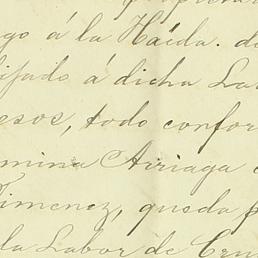 go á la Haida. d
ifado á dicha La
esos, todo confor
mina Arriaga
Timenez, queda p
la Labor de Cru